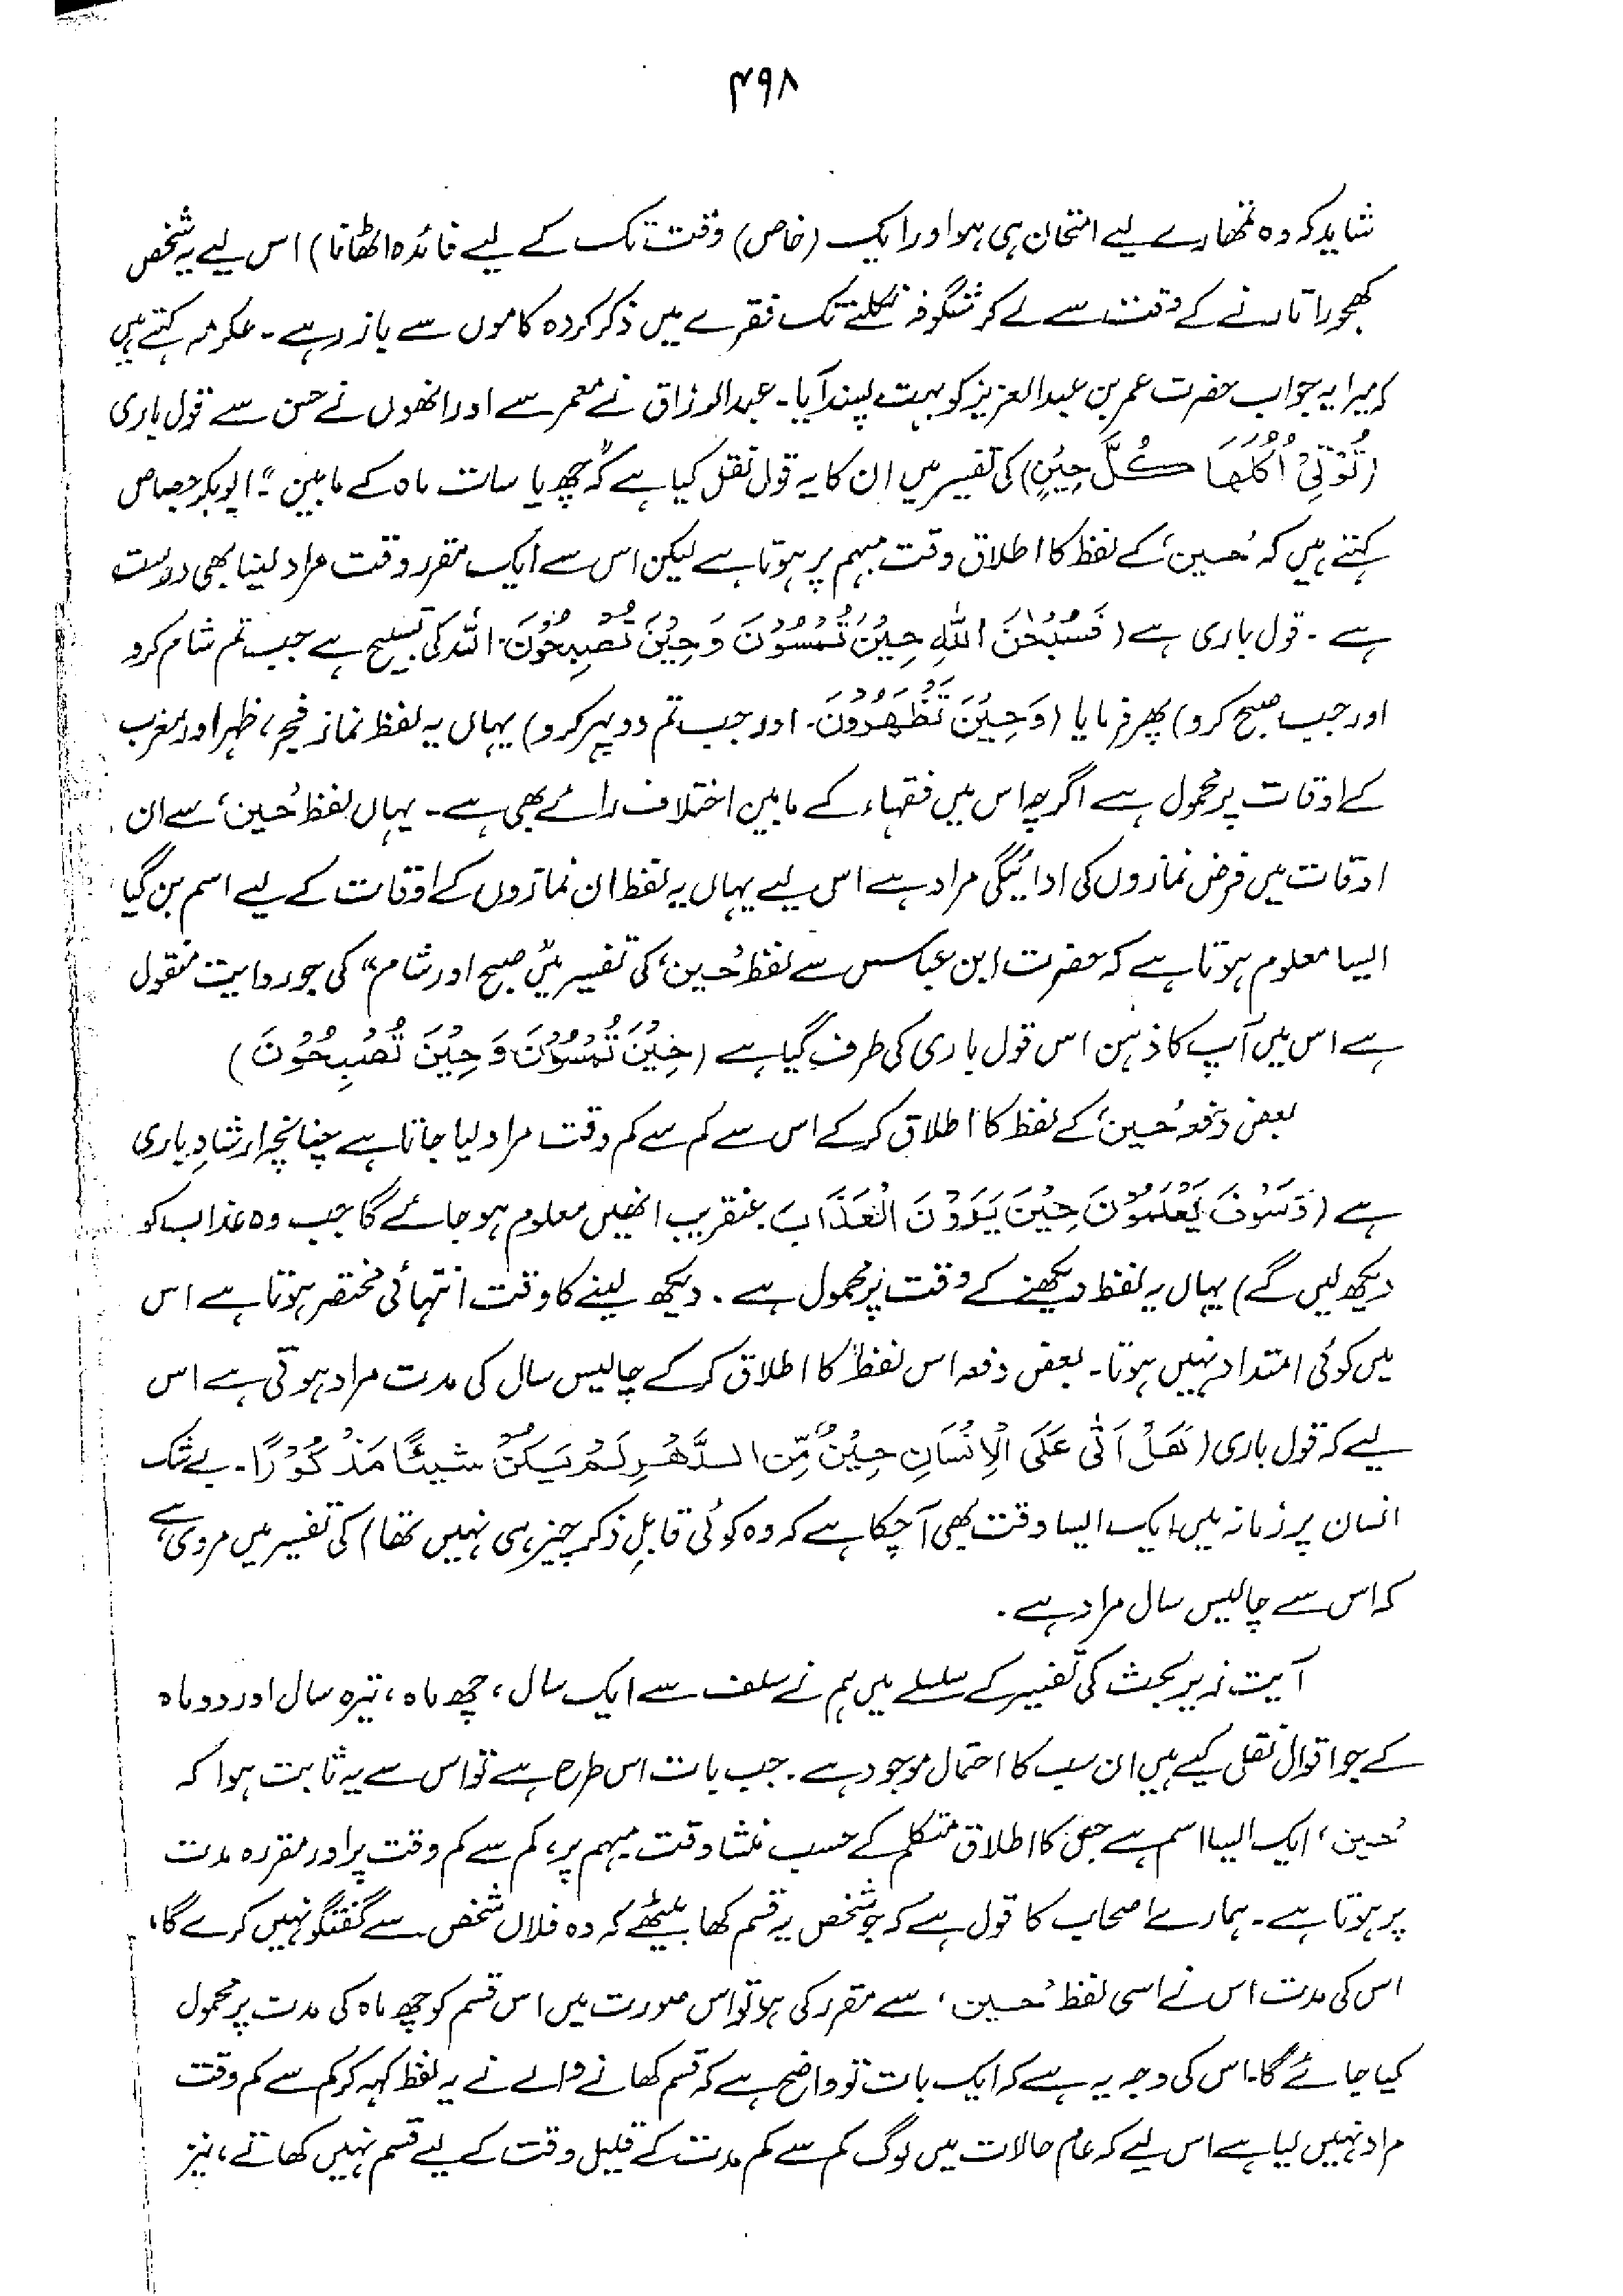 ۴۹۸
شاید کہ وہ تمھارے لیے امتحان ہی ہو اور ایک (خاص) وقت تک کے لیے فائدہ اٹھانا) اس لیے یہ شخص
کھجور اتارنے کے وقت سے لے کر شگوفہ نکلنے تک فقرے میں ذکر کردہ کاموں سے باز رہے۔ عکرمہ کہتے ہیں
کہ میرا یہ جواب حضرت عمر بن عبدالعزیز کو بہت پسند آیا۔ عبدالرزاق نے معمر سے اور انھوں نے حسن سے قول باری
(تُؤْتِیْ اُکُلَھَا کُلَّ حِیْنٍ) کی تفسیر میں ان کا یہ قول نقل کیا ہے کہ "چھ یا سات ماہ کے مابین"۔ ابوبکر جصاص
کہتے ہیں کہ 'حین' کے لفظ کا اطلاق وقت مبہم پر ہوتا ہے لیکن اس سے ایک مقرر وقت مراد لینا بھی درست
ہے۔ قول باری ہے (فَسُبْحٰنَ اللّٰهِ حِیْنَ تُمْسُوْنَ وَحِیْنَ تُصْبِحُوْنَ۔ اللہ کی تسبیح ہے جب تم شام کرو
اور جب صبح کرو) پھر فرمایا (وَحِیْنَ تُظْهِرُوْنَ۔ اور جب تم دوپہر کرو) یہاں یہ لفظ نماز فجر، ظہر اور مغرب
کے اوقات پر محمول ہے اگرچہ اس میں فقہاء کے مابین اختلاف رائے بھی ہے۔ یہاں لفظ 'حین' سے ان
اوقات میں فرض نمازوں کی ادائیگی مراد ہے اس لیے یہاں یہ لفظ ان نمازوں کے اوقات کے لیے اسم بن گیا
ایسا معلوم ہوتا ہے کہ حضرت ابن عباس سے لفظ 'حین' کی تفسیر میں "صبح اور شام" کی جو روایت منقول
ہے اس میں آپ کا ذہن اس قول باری کی طرف گیا ہے (حِیْنَ تُمْسُوْنَ وَحِیْنَ تُصْبِحُوْنَ)
بعض دفعہ 'حین' کے لفظ کا اطلاق کر کے اس سے کم سے کم وقت مراد لیا جاتا ہے چنانچہ ارشادِ باری
ہے (وَسَوْفَ یَعْلَمُوْنَ حِیْنَ یَرَوْنَ الْعَذَابَ۔ عنقریب انھیں معلوم ہو جائے گا جب وہ عذاب کو
دیکھ لیں گے) یہاں یہ لفظ دیکھنے کے وقت پر محمول ہے۔ دیکھ لینے کا وقت انتہائی مختصر ہوتا ہے اس
میں کوئی امتداد نہیں ہوتا۔ بعض دفعہ اس لفظ کا اطلاق کر کے چالیس سال کی مدت مراد ہوتی ہے اس
لیے کہ قول باری (هَلْ اَتٰی عَلَی الْاِنْسَانِ حِیْنٌ مِّنَ الدَّهْرِ لَمْ یَکُنْ شَیْئًا مَذْکُوْرًا۔ بے شک
انسان پر زمانہ میں ایک ایسا وقت بھی آ چکا ہے کہ وہ کوئی قابلِ ذکر چیز ہی نہیں تھا) کی تفسیر میں مروی ہے،
کہ اس سے چالیس سال مراد ہے۔
آیت زیر بحث کی تفسیر کے سلسلے میں ہم نے سلف سے ایک سال، چھ ماہ، تیرہ سال اور دو ماہ
کے جو اقوال نقل کیے ہیں ان سب کا احتمال موجود ہے۔ جب بات اس طرح ہے تو اس سے یہ ثابت ہوا کہ
'حین' ایک ایسا اسم ہے جس کا اطلاق متکلم کے حسب منشا وقت مبہم پر، کم سے کم وقت پر اور مقررہ مدت
پر ہوتا ہے۔ ہمارے اصحاب کا قول ہے کہ جو شخص یہ قسم کھا بیٹھے کہ وہ فلاں شخص سے گفتگو نہیں کرے گا،
اس کی مدت اس نے اسی لفظ 'حین' سے مقرر کی ہو تو اس صورت میں اس قسم کو چھ ماہ کی مدت پر محمول
کیا جائے گا۔ اس کی وجہ یہ ہے کہ ایک بات تو واضح ہے کہ قسم کھانے والے نے یہ لفظ کہہ کر کم سے کم وقت
مراد نہیں لیا ہے اس لیے کہ عام حالات میں لوگ کم سے کم مدت کے قلیل وقت کے لیے قسم نہیں کھاتے، نیز